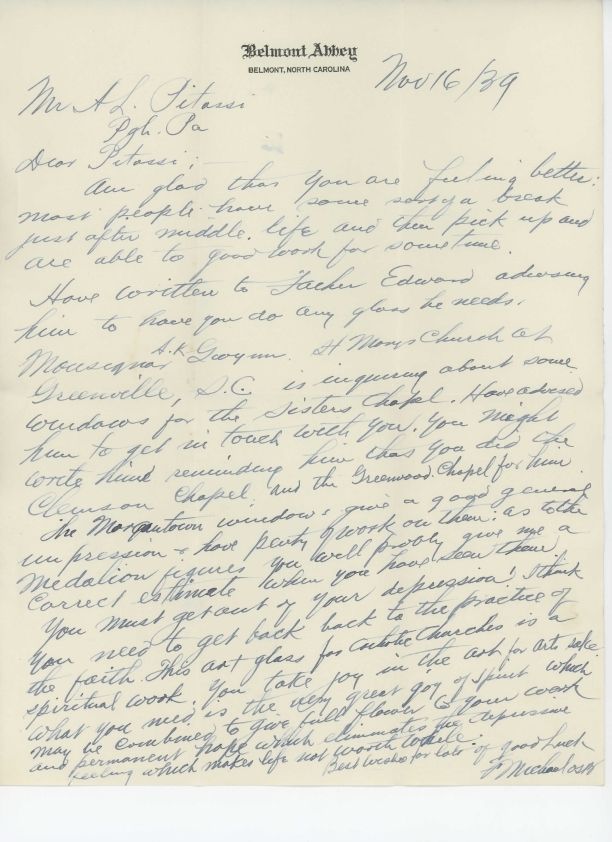 Belmont Abbey
BELMONT, NORTH CAROLINA
Nov 16/39
Mr A L. Pitassi
Pgh. Pa
Dear Pitassi;
Am glad that you are feeling better:
most people have some sort of a break
just after middle life and then pick up and
are able to good work for sometime.
Have written to Father Edward advising
him to have you do any glass he needs.
Monsignor A.K. Gwynn. St Marys Church at
Greenville, S.C. is inquiring about some
windows for the Sisters Chapel. Have advised
him to get in touch with you. You might
write him reminding him that you did the
Clemson Chapel and the Greenwood Chapel for him
The Morgantown windows give a good general
impression & have plenty of work on them: as to the
Medalion figures you will probly give me a
correct estimate when you have seen them.
You must get out of your depression! I think
you need to get back back to the practice of
the faith. This art glass for Catholic Churches is a
spiritual work. You take joy in the art for arts sake
what you need is the very great joy of spirit which
may be combined to give full flower to your work
and permanent hope which eliminates the depressive
feeling which makes life not worth while.
Best wishes for lots of good luck
F Michael OSB